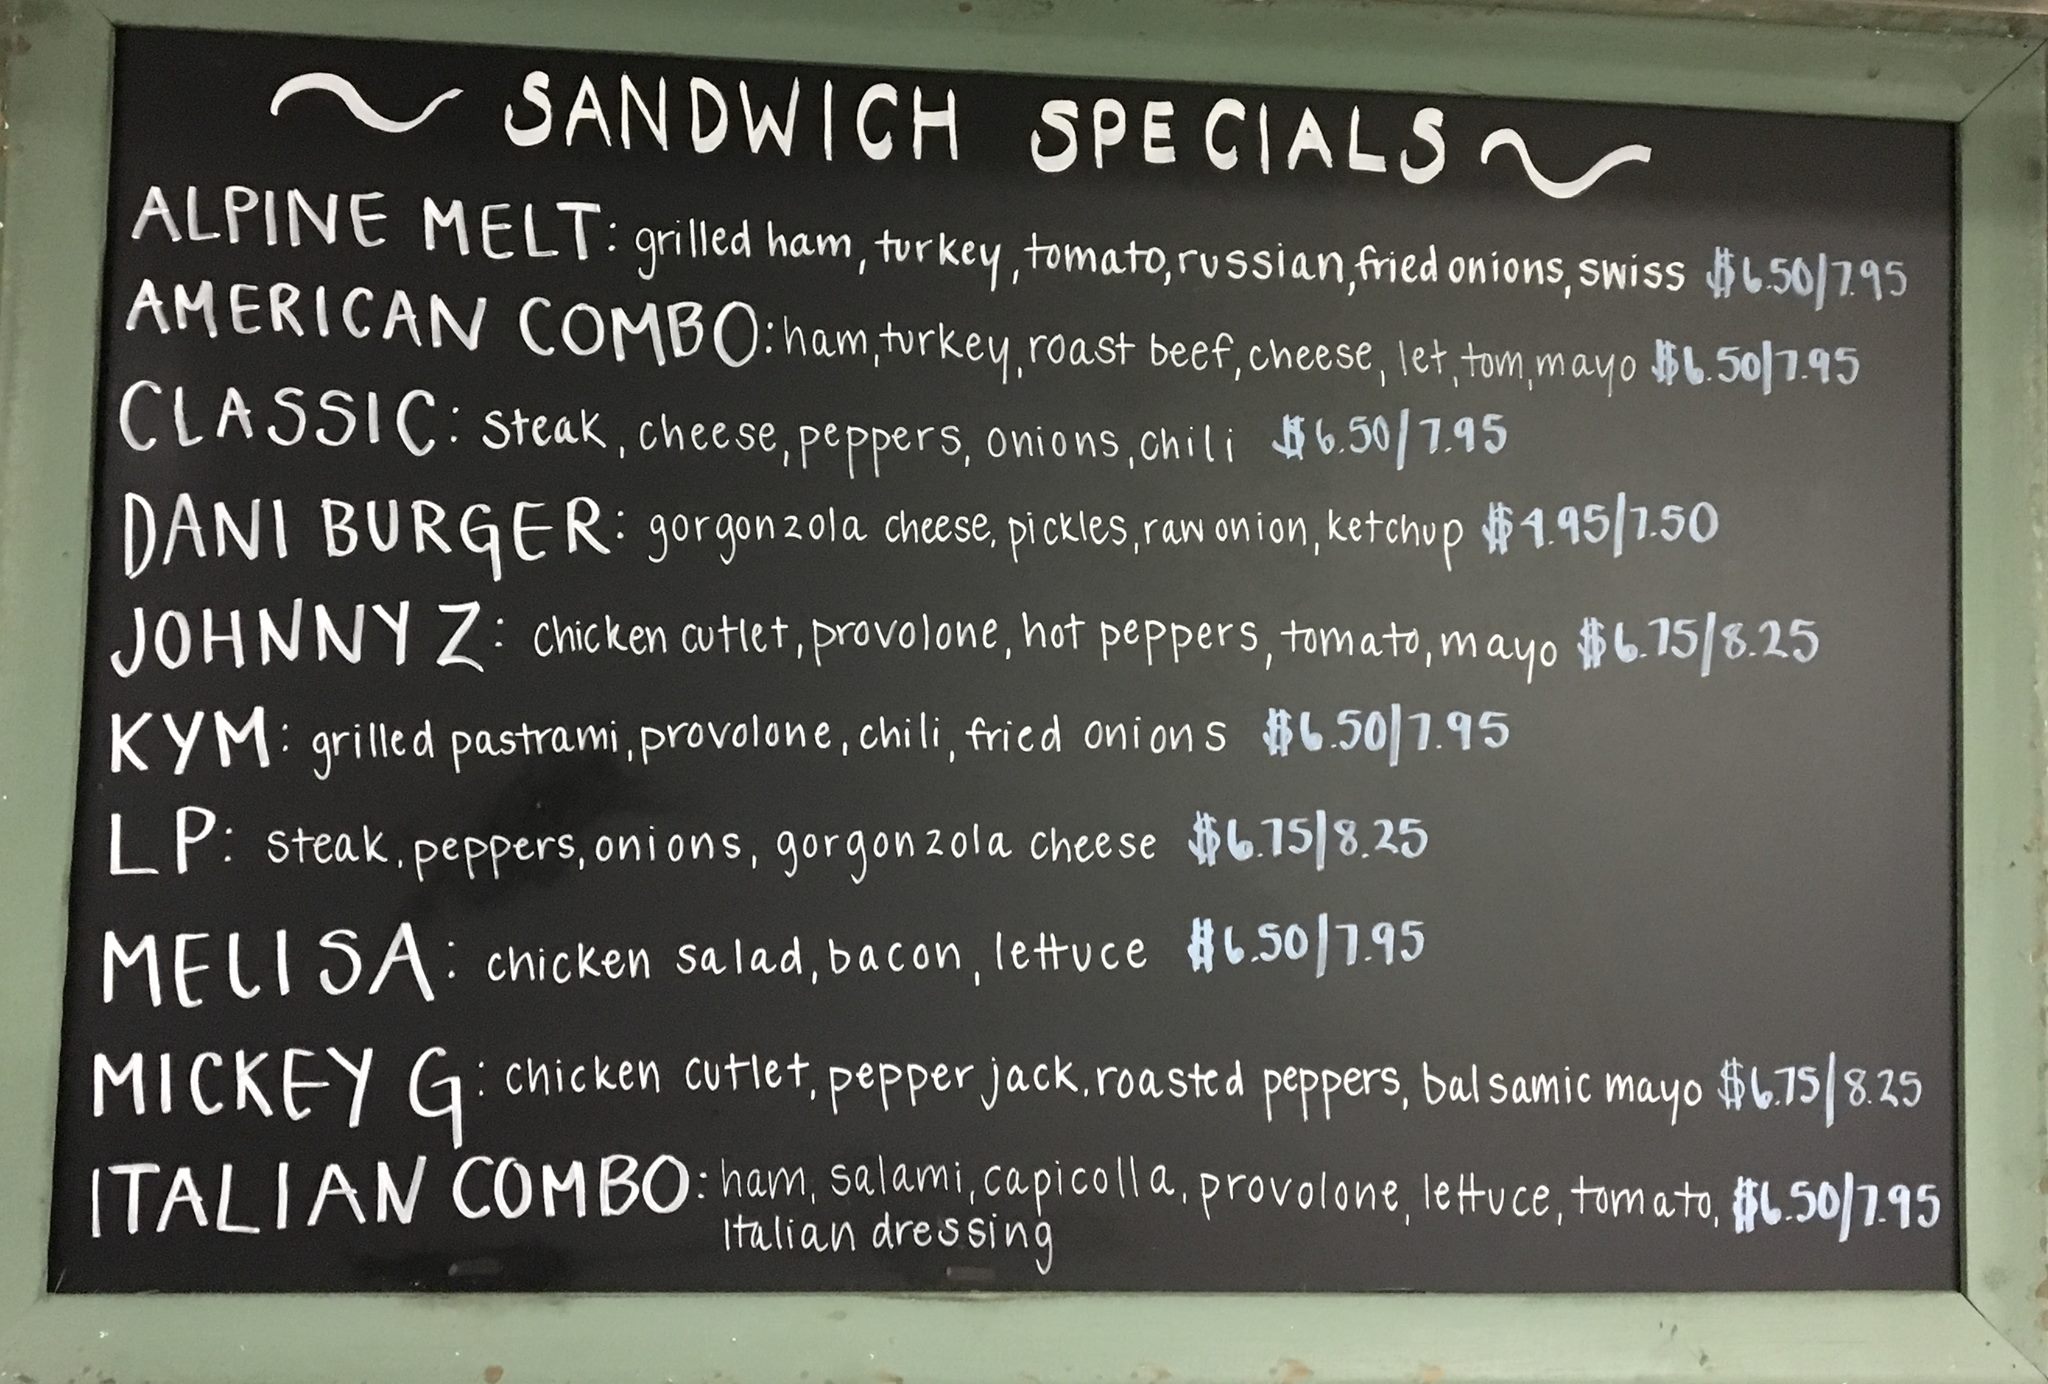 ~ SANDWICH SPECIALS ~
ALPINE MELT: grilled ham, turkey, tomato, russian, fried onions, swiss $6.50/7.95
AMERICAN COMBO: ham, turkey, roast beef, cheese, let, tom, mayo $6.50/7.95
CLASSIC: steak, cheese, peppers, onions, chili $6.50/7.95
DANI BURGER: gorgonzola cheese, pickles, raw onion, ketchup $4.95/7.50
JOHNNY Z: chicken cutlet, provolone, hot peppers, tomato, mayo $6.75/8.25
KYM: grilled pastrami, provolone, chili, fried onions $6.50/7.95
LP: steak, peppers, onions, gorgonzola cheese $6.75/8.25
MELISA: chicken salad, bacon, lettuce $6.50/7.95
MICKEY G: chicken cutlet, pepper jack, roasted peppers, balsamic mayo $6.75/8.25
ITALIAN COMBO: ham, salami, capicolla, provolone, lettuce, tomato, $6.50/7.95
Italian dressing